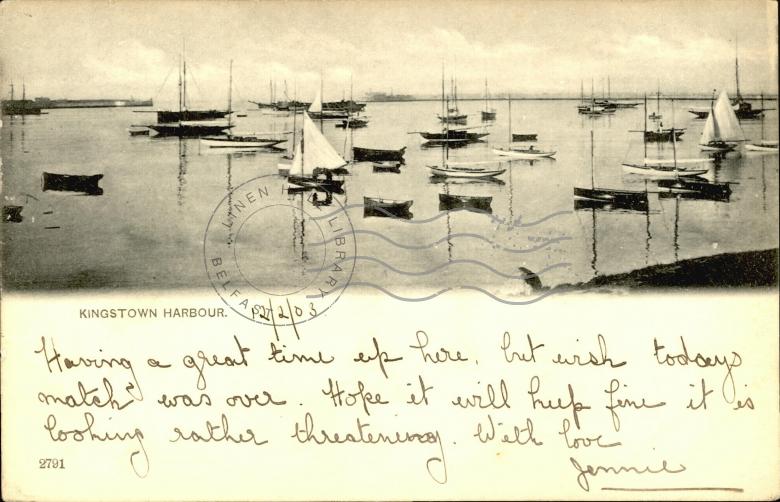 LINEN HALL LIBRARY
BELFAST
KINGSTOWN HARBOUR.
12/2/03
Having a great time up here, but wish todays
match was over. Hope it will keep fine it is
looking rather threatening. With love
Jennie
2791